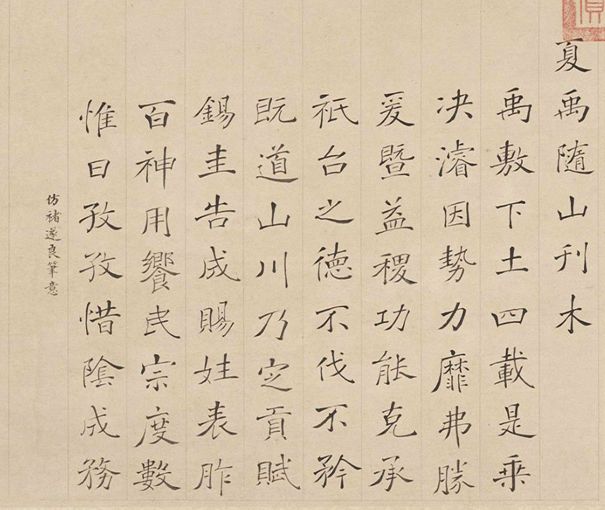 夏禹隨山刊木
禹敷下土四載是乗
决濬因勢力靡弗勝
爰暨益稷功能克承
祇台之德不伐不矜
既道山川乃定貢賦
錫圭告成賜姓表胙
百神用饗民宗度數
惟日孜孜惜陰成務
仿褚遂良筆意